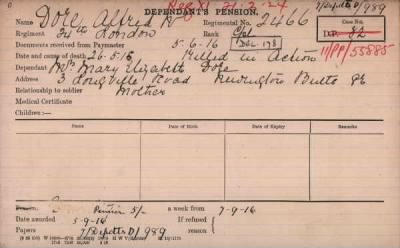 DEPENDANT'S PENSION.
Reg XI 21.2.24
Name Dole Alfred R Regimental No. 2466
Case No.
Regiment 24th London Rank Cpl
D.P. 82
11/PP/55885
Documents received from Paymaster 5-6-16
Date and cause of death 26-5-16 Killed in Action
Dependant Mrs Mary Elizabeth Dole
3 Longville Road Newington Butts
Relationship to soldier Mother
Medical Certificate
Children:—
NAME Date of Birth. Date of Expiry. REMARKS.
Pension 5/-
Date awarded 5-9-16 If refused 7-9-16
Papers D/989 reason